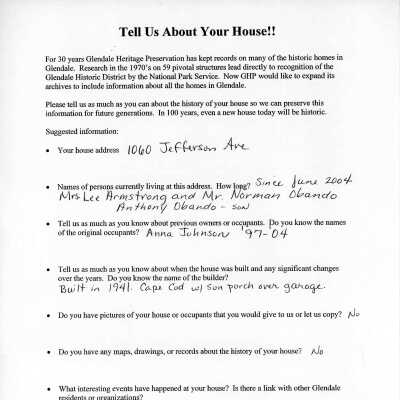 Tell Us About Your House!!
For 30 years Glendale Heritage Preservation has kept records on many of the historic homes in
Glendale. Research in the 1970's on 59 pivotal structures lead directly to recognition of the
Glendale Historic District by the National Park Service. Now GHP would like to expand its
archives to include information about all the homes in Glendale.
Please tell us as much as you can about the history of your house so we can preserve this
information for future generations. In 100 years, even a new house today will be historic.
Suggested information:
• Your house address 1060 Jefferson Ave
• Names of persons currently living at this address. How long? Since June 2004
Mrs Lee Armstrong and Mr. Norman Obando
Anthony Obando - son
• Tell us as much as you know about previous owners or occupants. Do you know the names
of the original occupants? Anna Johnson '97-'04
• Tell us as much as you know about when the house was built and any significant changes
over the years. Do you know the name of the builder?
Built in 1941. Cape Cod w/ sun porch over garage.
• Do you have pictures of your house or occupants that you would give to us or let us copy? No
• Do you have any maps, drawings, or records about the history of your house? No
• What interesting events have happened at your house? Is there a link with other Glendale
residents or organizations?